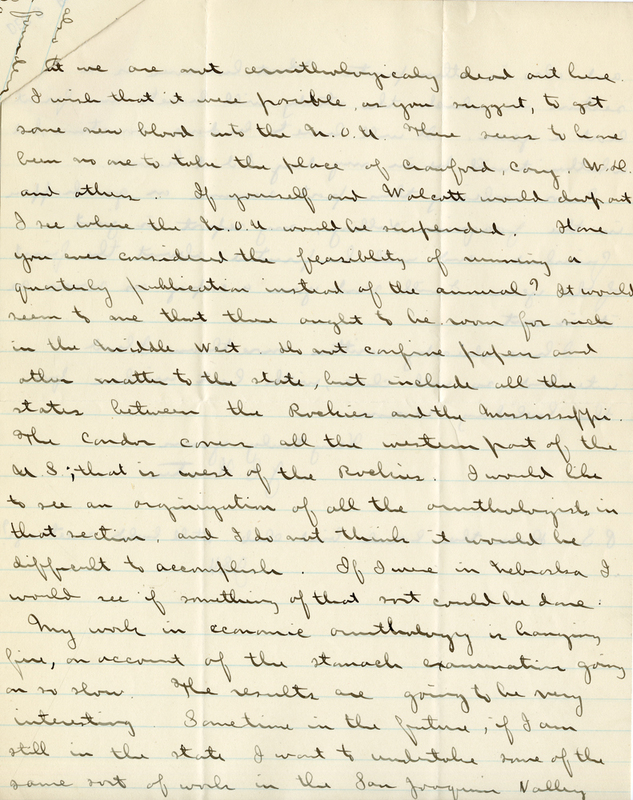 at we are not ornithologicaly dead out here.
I wish that it were possible, as you suggest, to get
some new blood into the N.O.U. There seems to have
been no one to take the place of Crawford, Cary, W.D.
and others. If yourself and Wolcott would drop out
I see where the N.O.U. would be suspended. Have
you ever considered the feasiblity of running a
quarterly publication instead of the annual? It would
seem to me that there ought to be room for such
in the Middle West. Do not confine papers and
other matter to the state, but include all the
states between the Rockies and the Mississippi.
The Condor covers all the western part of the
U.S; that is west of the Rockies. I would like
to see an orginization of all the ornithologists in
that section, and I do not think it would be
difficult to accomplish. If I were in Nebraska I
would see if something of that sort could be done.
My work in economic ornithology is hanging
fire, on account of the stomach examination going
on so slow. The results are going to be very
interesting. Sometime in the future, if I am
still in the state I want to undertake some of the
same sort of work in the San Joaquin Valley